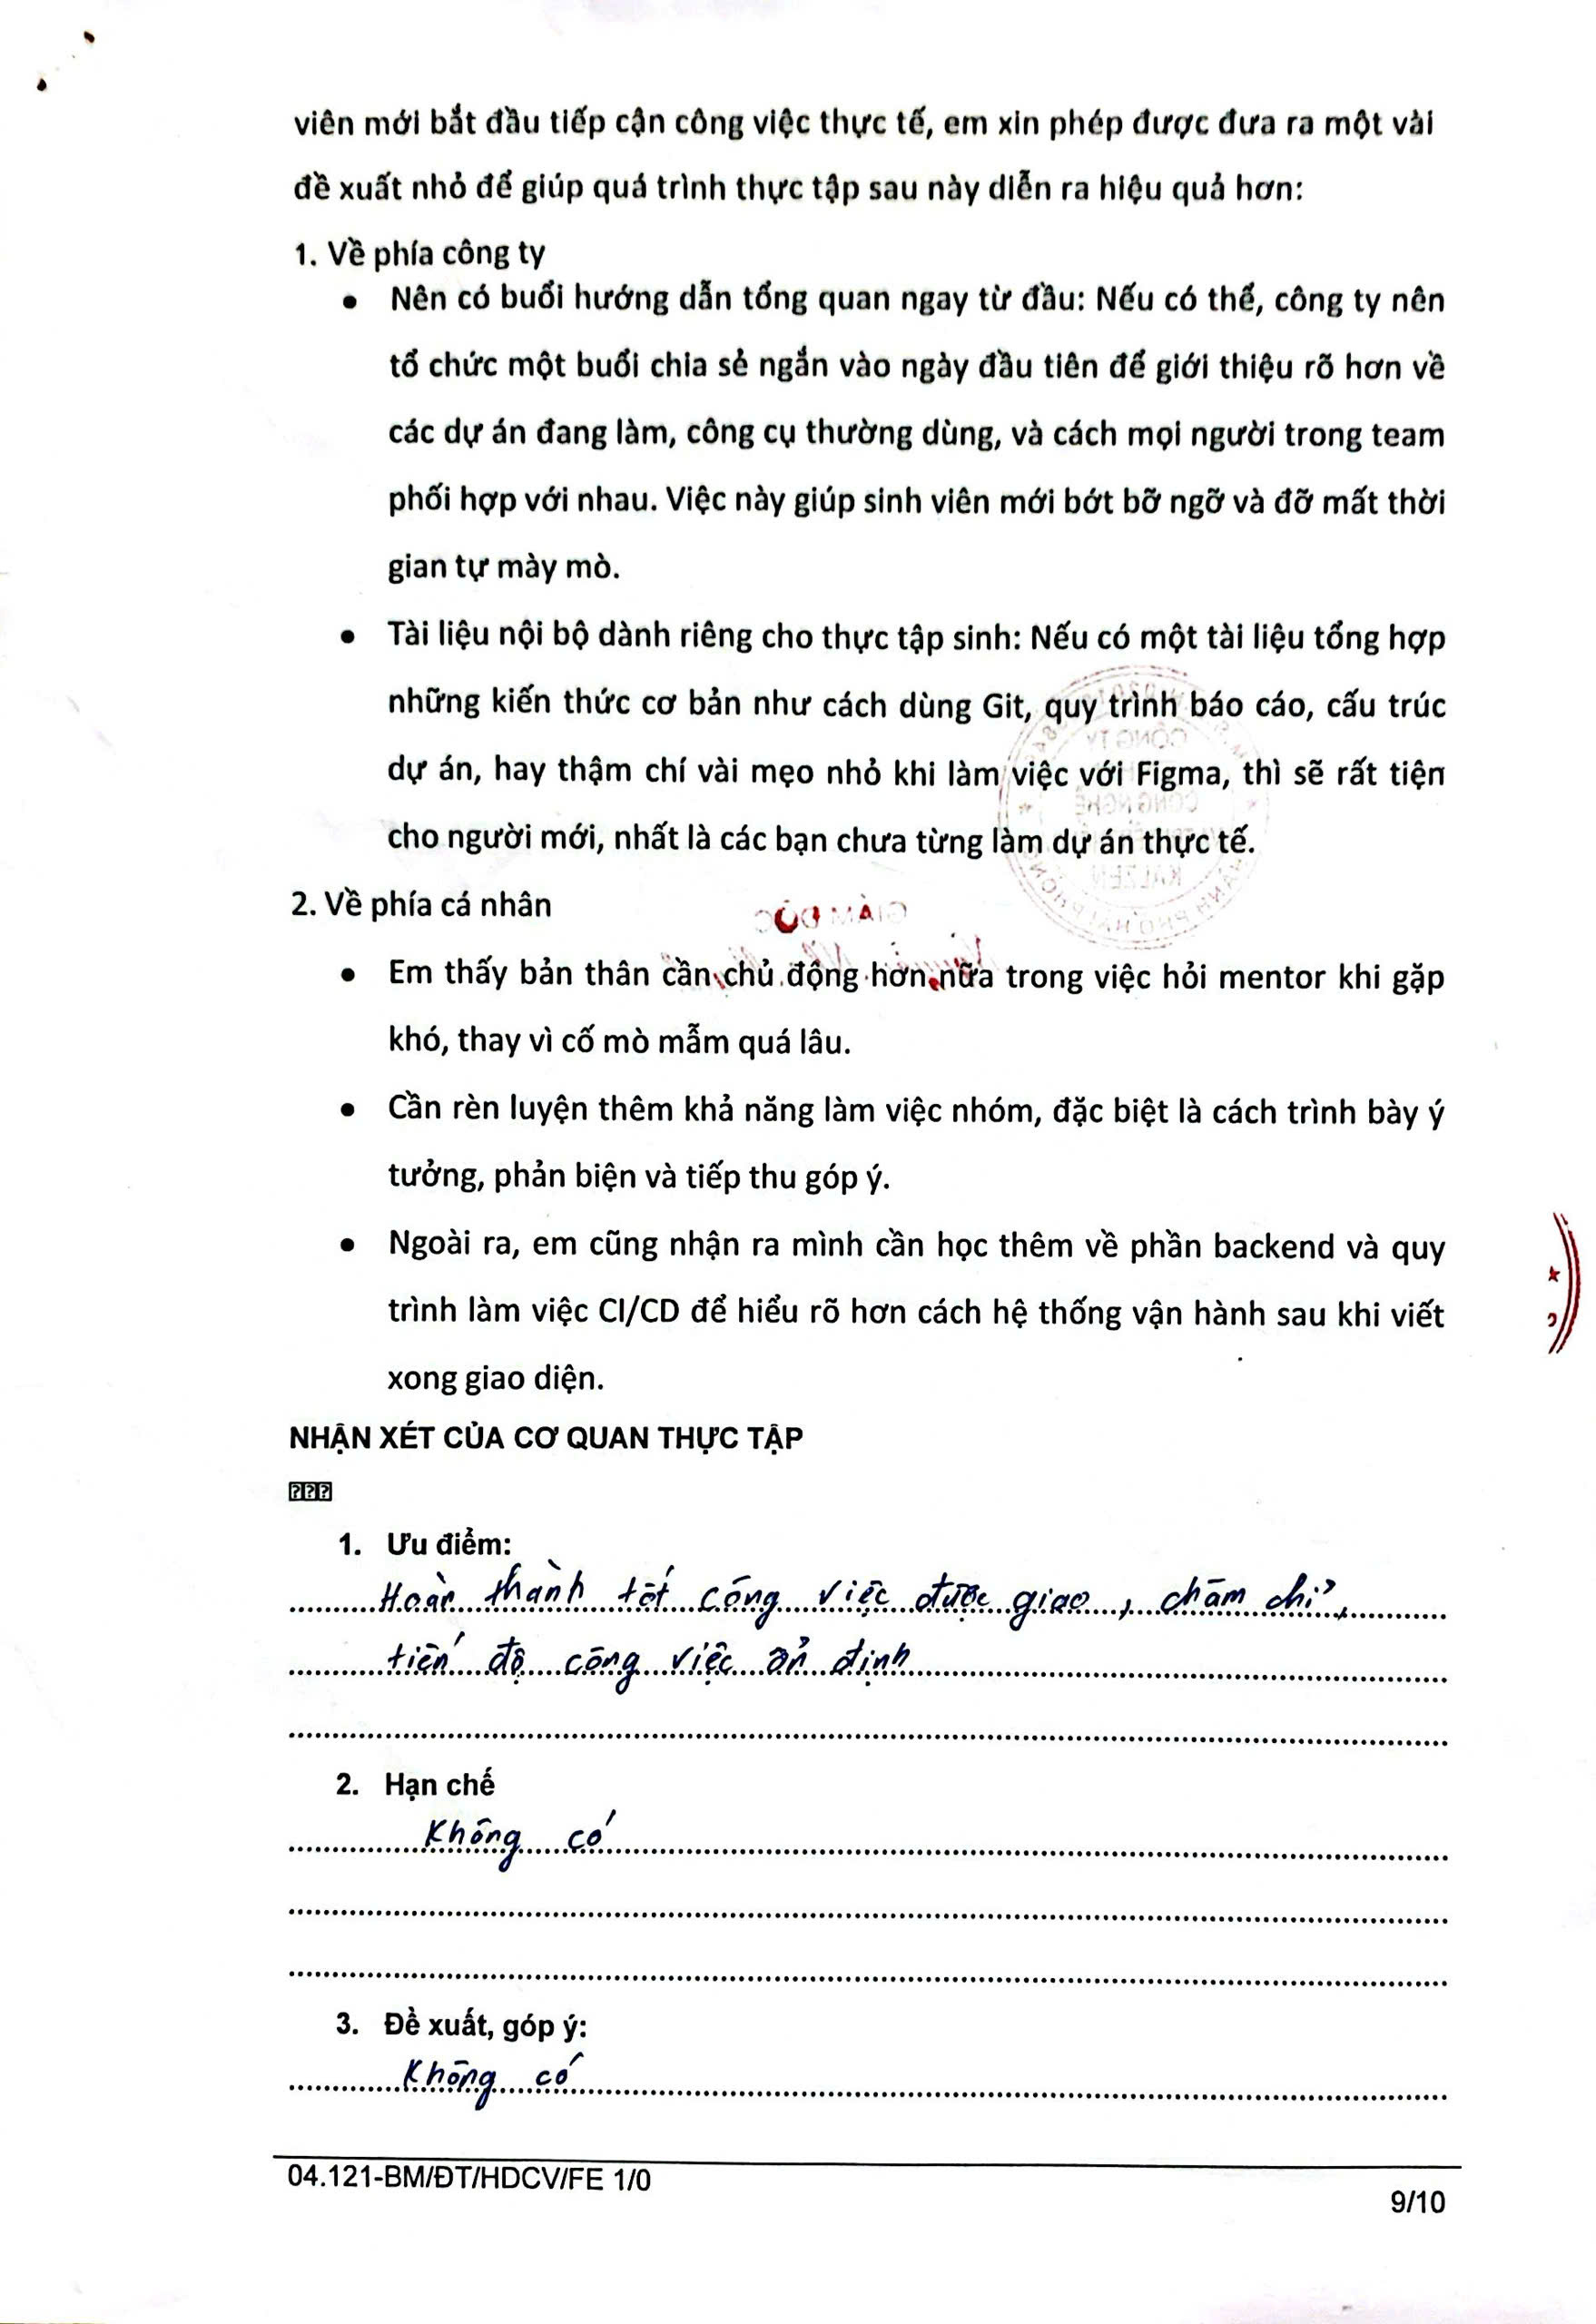 viên mới bắt đầu tiếp cận công việc thực tế, em xin phép được đưa ra một vài
đề xuất nhỏ để giúp quá trình thực tập sau này diễn ra hiệu quả hơn:
1. Về phía công ty
• Nên có buổi hướng dẫn tổng quan ngay từ đầu: Nếu có thể, công ty nên
tổ chức một buổi chia sẻ ngắn vào ngày đầu tiên để giới thiệu rõ hơn về
các dự án đang làm, công cụ thường dùng, và cách mọi người trong team
phối hợp với nhau. Việc này giúp sinh viên mới bớt bỡ ngỡ và đỡ mất thời
gian tự mày mò.
• Tài liệu nội bộ dành riêng cho thực tập sinh: Nếu có một tài liệu tổng hợp
những kiến thức cơ bản như cách dùng Git, quy trình báo cáo, cấu trúc
dự án, hay thậm chí vài mẹo nhỏ khi làm việc với Figma, thì sẽ rất tiện
cho người mới, nhất là các bạn chưa từng làm dự án thực tế.
2. Về phía cá nhân
GIÁM ĐỐC
• Em thấy bản thân cần chủ động hơn nữa trong việc hỏi mentor khi gặp
khó, thay vì cố mò mẫm quá lâu.
• Cần rèn luyện thêm khả năng làm việc nhóm, đặc biệt là cách trình bày ý
tưởng, phản biện và tiếp thu góp ý.
• Ngoài ra, em cũng nhận ra mình cần học thêm về phần backend và quy
trình làm việc CI/CD để hiểu rõ hơn cách hệ thống vận hành sau khi viết
xong giao diện.
NHẬN XÉT CỦA CƠ QUAN THỰC TẬP
???
1. Ưu điểm:
Hoàn thành tốt công việc được giao, chăm chỉ,
tiến độ công việc ổn định
2. Hạn chế
Không có
3. Đề xuất, góp ý:
Không có
04.121-BM/ĐT/HDCV/FE 1/0
9/10